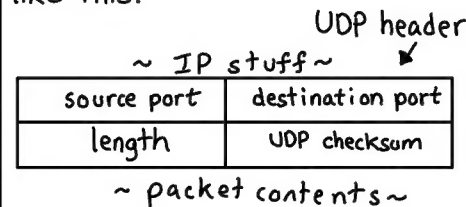 like this:
UDP header
~ IP stuff ~
source port destination port
length UDP checksum
~ packet contents ~